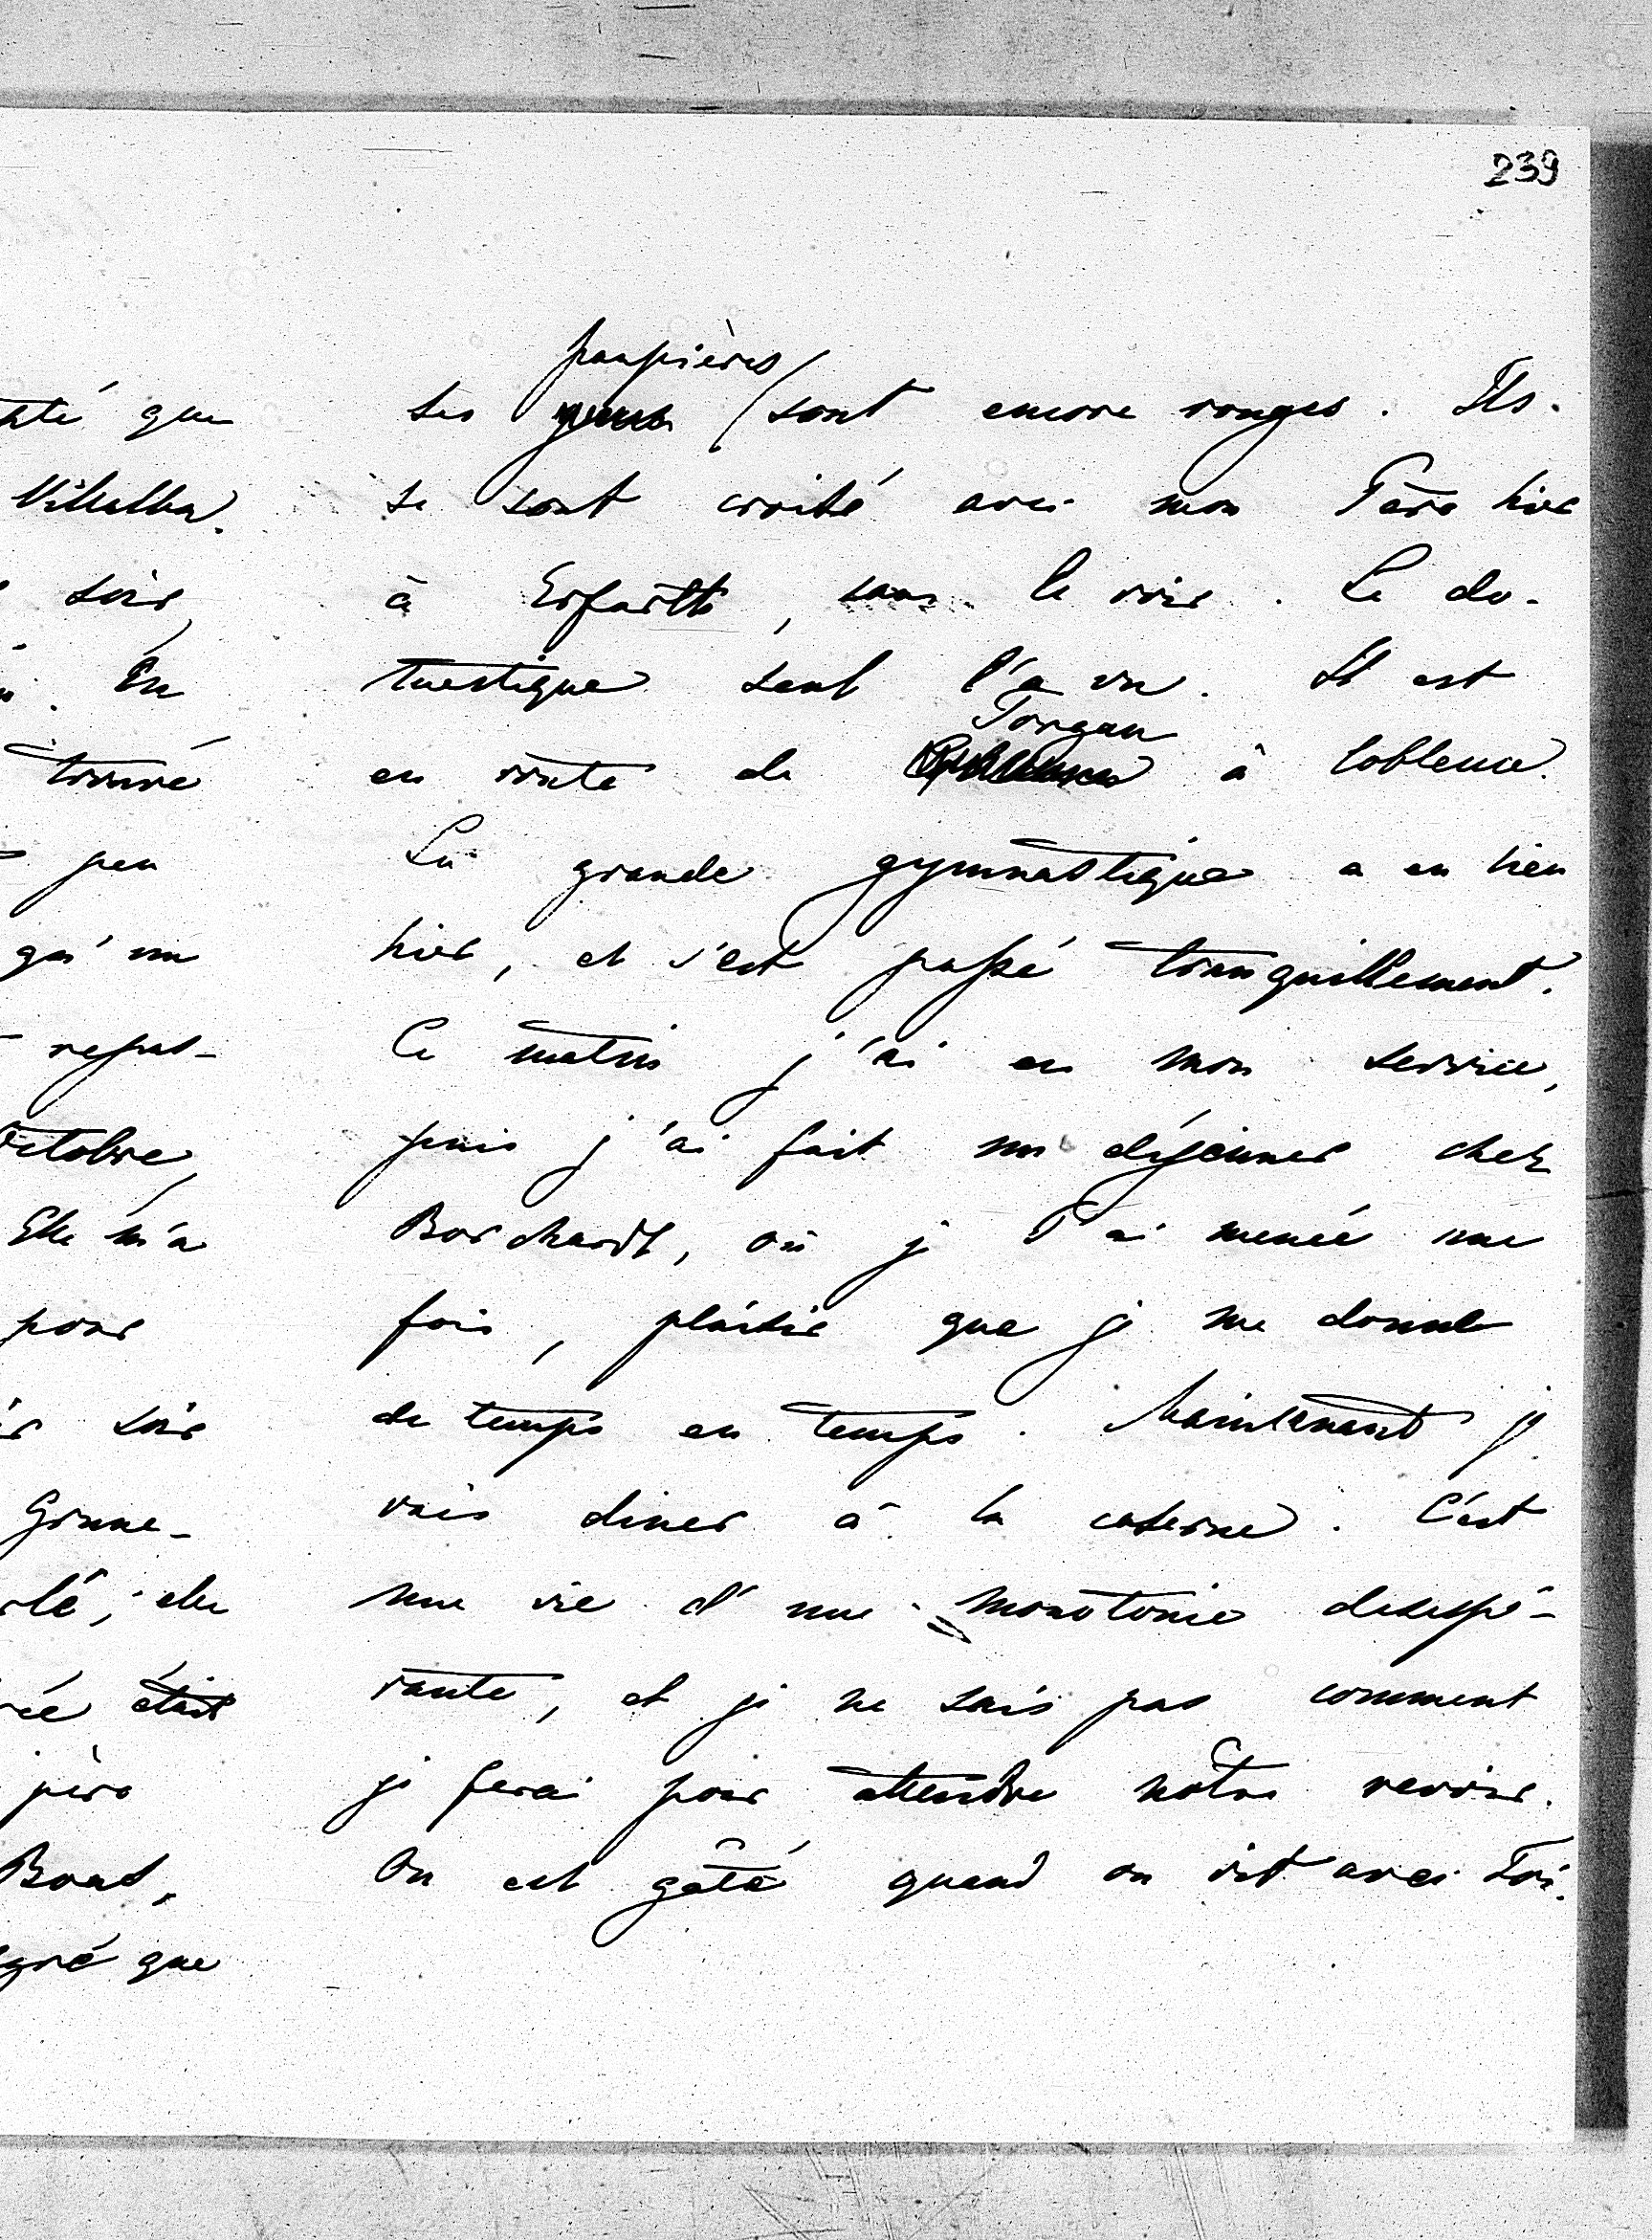 239
paupières
ses yeux sont encore rouges. Ils
se sont croisé avec mon Père hier
à Erfurth, sans le voir. Le do-
mestique seul l'a vu. Il est
Torgau
en route de à Coblence.
La grande gymnastique a eu lieu
hier, et s'est passé tranquillement.
Ce matin j'ai eu mon service,
puis j'ai fait un déjeuner chez
Borchardt, où je T'ai menée une
fois, plaisir que je me donne
de temps en temps. Maintenant je
vais diner à la caserne. C'est
une vie d'une monotonie desespé-
rante, et je ne sais pas comment
je ferai pour attendre nôtre revoir.
On est gâté quand on vit avec Toi.
que
Villalba.
soir,
En
trouvé
peu
qu'un
repas-
Octobre,
Elle m'a
pour
soir
Grune-
elle
était
père
que